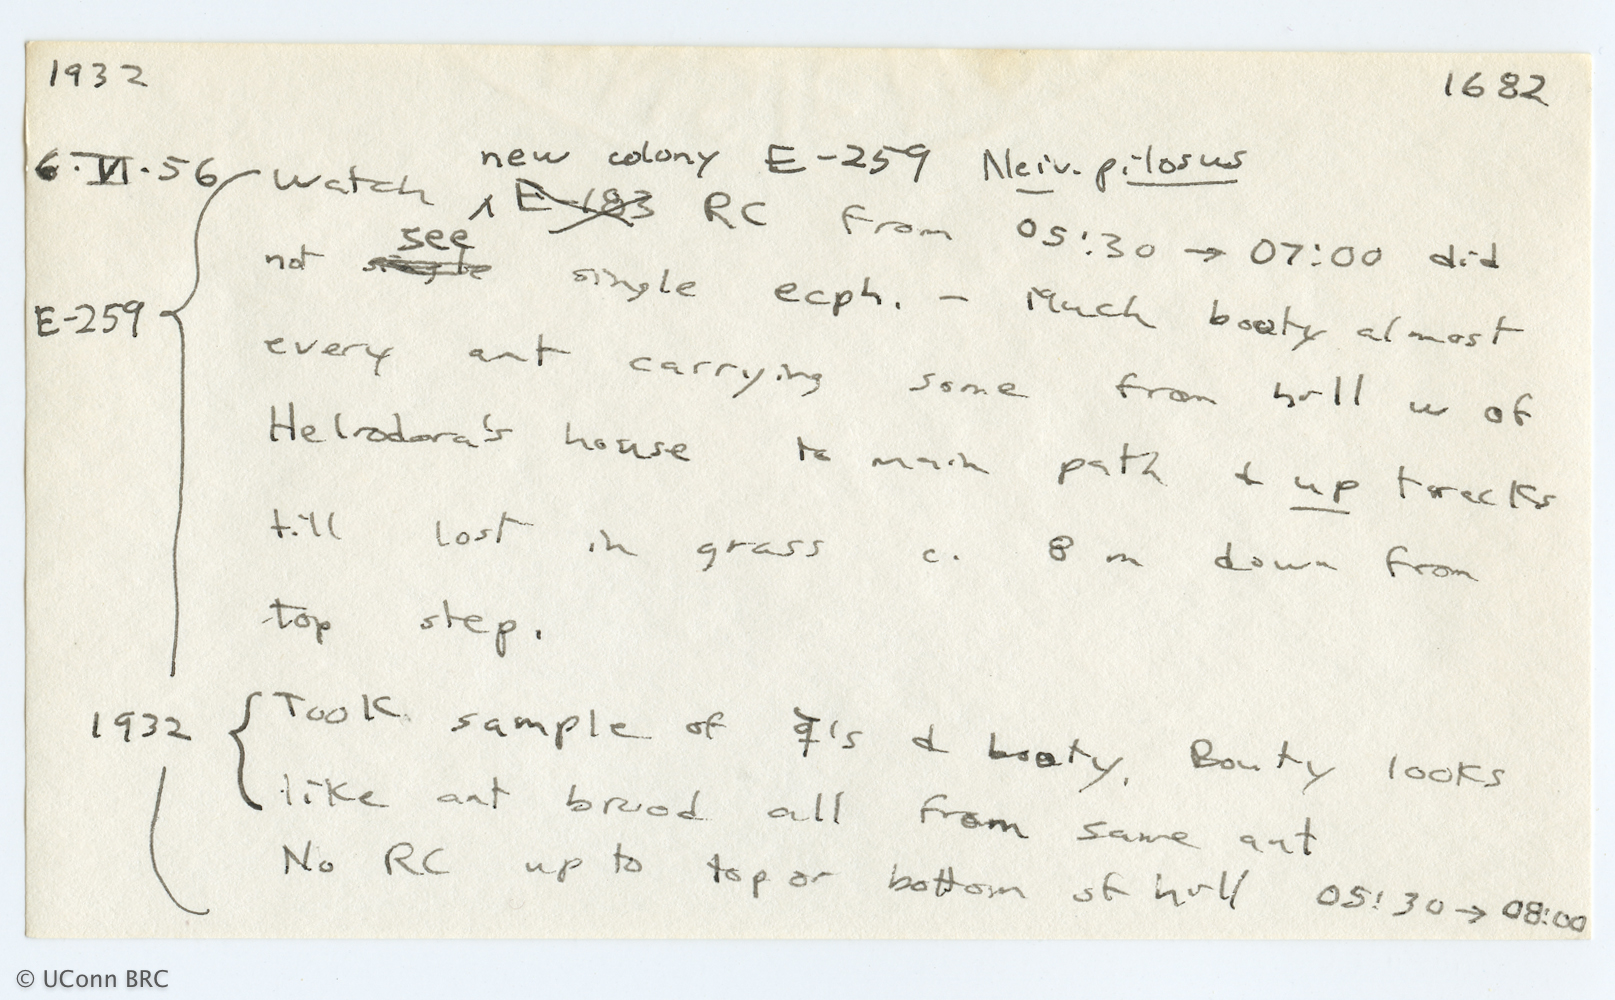 1932 1682
new colony E-259 Neiv. pilosus
6·VI·56 Watch ^ E-183 RC from 05:30 → 07:00 did
see
not single single ecph. – Much booty almost
E-259
every ant carrying some from hill w of
Heliodora's house to main path & up tracks
till lost in grass c. 8 m down from
top step.
1932 Took sample of ☿'s & booty. Booty looks
like ant brood all from same ant
No RC up to top or bottom of hill 05:30 → 08:00
© UConn BRC